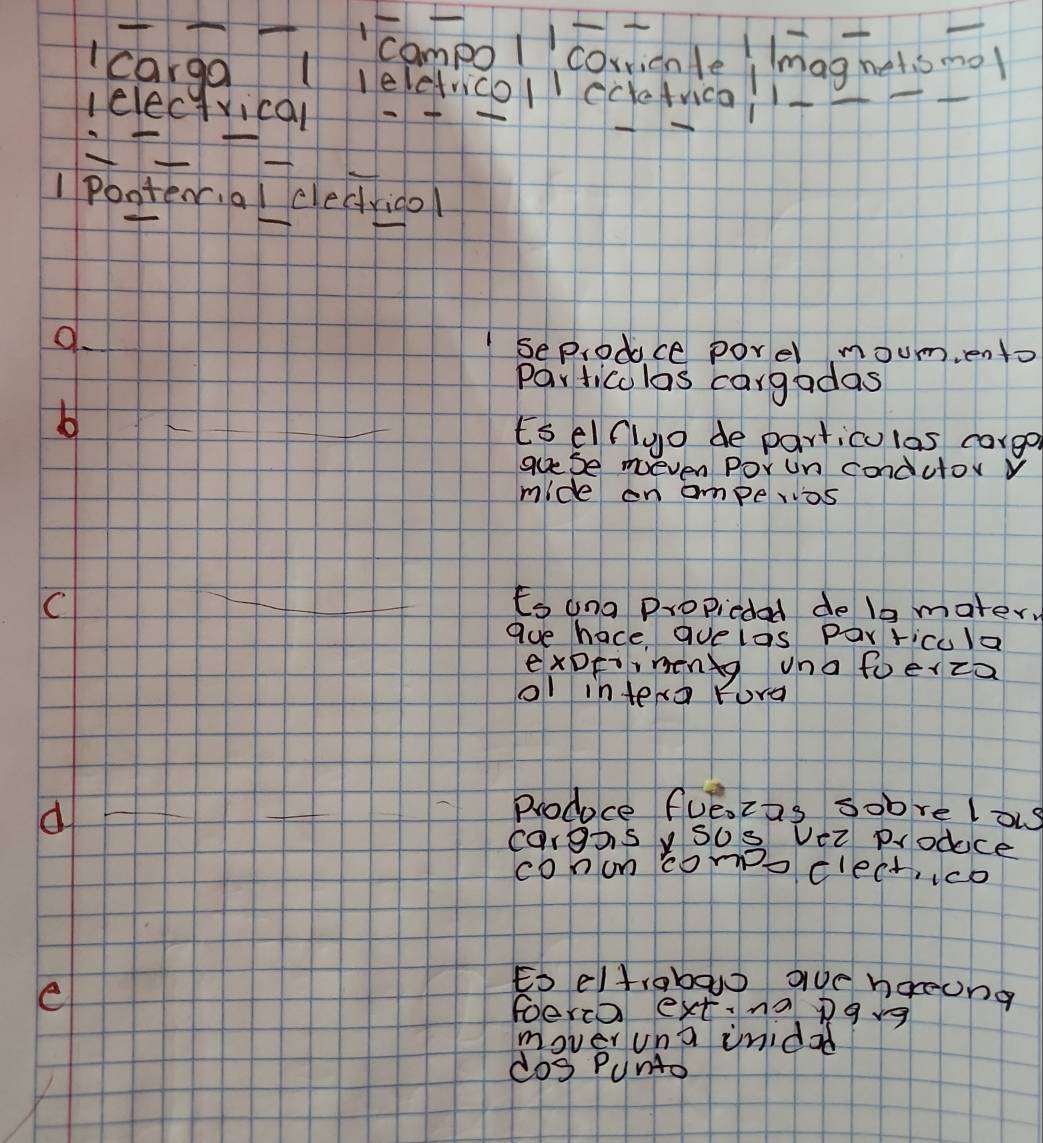 carga campo corriente magnetismo
electrica eletrico ecletrica
Pontencial electrico
a. Se produce por el moumiento
particulas cargadas
b Es el flujo de particulas carga
que se mueven por un condutor y
mide en amperios
c Es una propiedad de la mater
que hace que las particula
experimenta una fuerza
al
d Produce fuerzas sobre las
cargas y sus vez produce
con un campo electrico
e Es el trabajo que hace una
fuerza externa para
mover una
dos punto